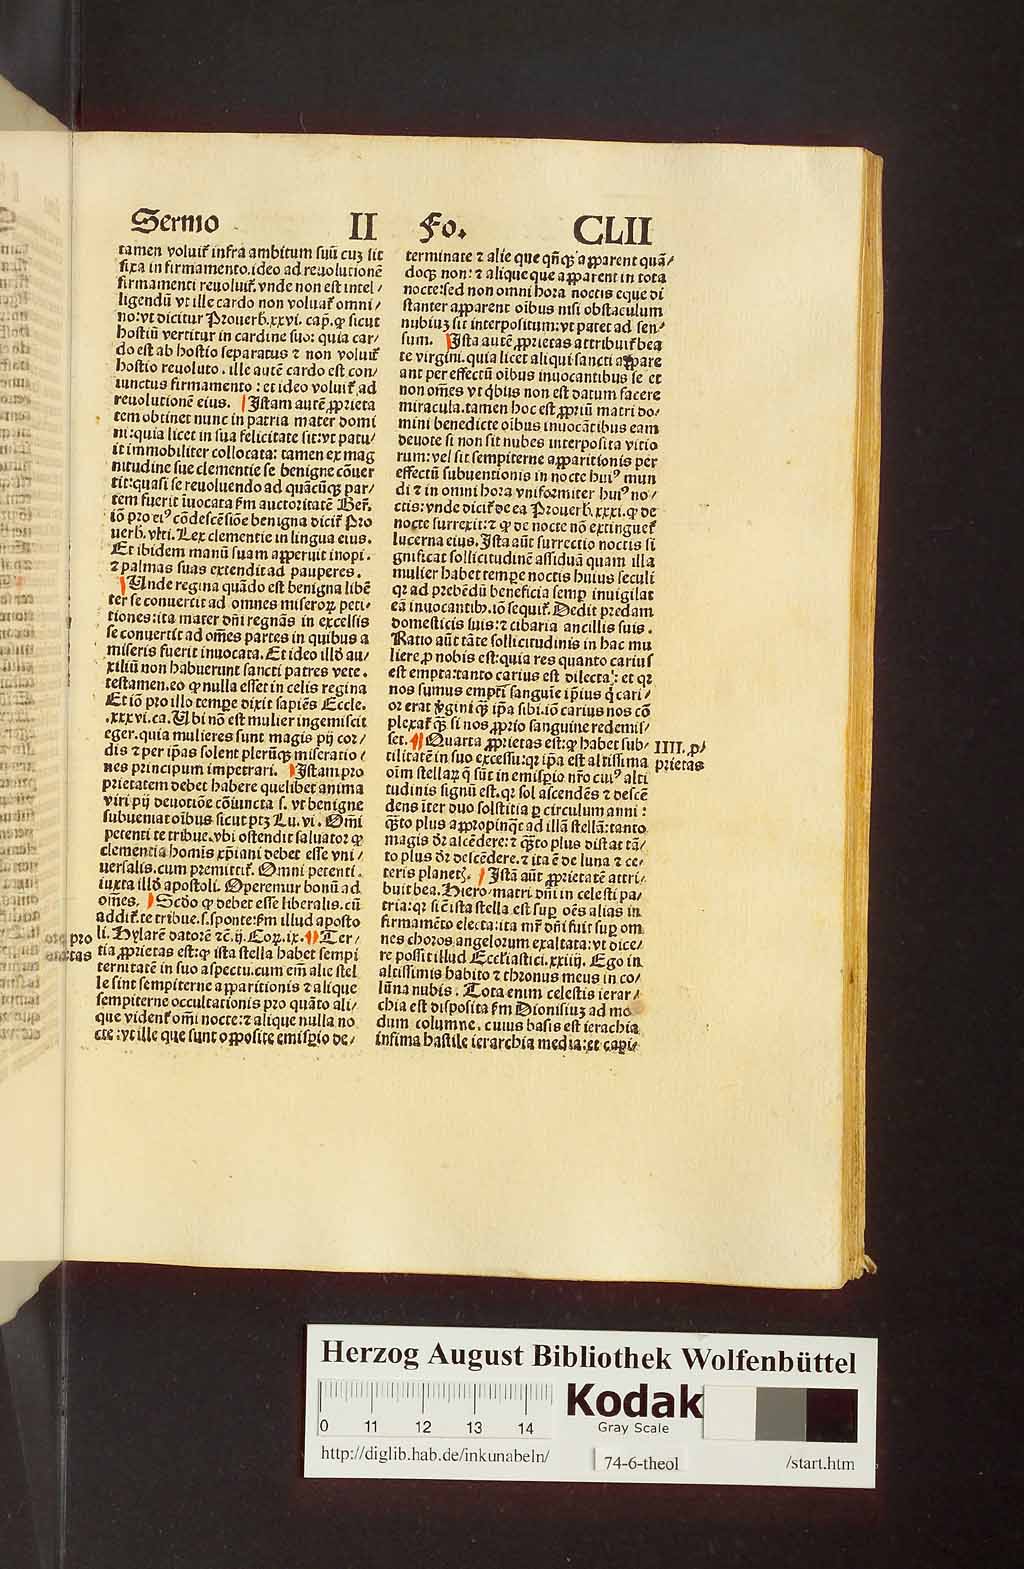 Sermo II Fo. CLII
tamen voluit᷑ infra ambitum suū cuꝫ sit
fixa in firmamento. ideo ad reuolutionē
firmamenti reuoluit᷑. vnde non est intel⸗
ligendū vt ille cardo non voluat᷑ omni⸗
no: vt dicitur Prouerb. xxvi. cap. ꝙ sicut
hostiū vertitur in cardine suo: quia car⸗
do est ab hostio separatus ⁊ non voluit᷑
hostio reuoluto. ille autē cardo est con⸗
iunctus firmamento: et ideo voluit᷑ ad
reuolutionē eius. Istam autē ꝓprieta
tem obtinet nunc in patria mater domi
ni: quia licet in sua felicitate sit: vt patu⸗
it immobiliter collocata: tamen ex mag
nitudine sue clementie se benigne cōuer
tit: quasi se reuoluendo ad quācūqꝫ par⸗
tem fuerit īuocata ẜm auctoritatē Ber̄.
iō pro eiꝰ cōdescēsiōe benigna dicit᷑ Pro
uerb. vlti. Lex clementie in lingua eius.
Et ibidem manū suam aꝑperuit inopi.
⁊ palmas suas extendit ad pauperes.
Unde regina quādo est benigna libē
ter se conuertit ad omnes miseroꝝ peti⸗
tiones: ita mater dn̄i regnās in excelsis
se conuertit ad om̄es partes in quibus a
miseris fuerit inuocata. Et ideo illd̄ au⸗
xiliū non habuerunt sancti patres vete.
testamen. eo ꝙ nulla esset in celis regina
Et iō pro illo tempe dixit sapiēs Eccle.
.xxxvi. ca. Ubi nō est mulier ingemiscit
eger. quia mulieres sunt magis pij cor⸗
dis ⁊ per ip̄as solent plerūqꝫ miseratio⸗
nes principum impetrari. Istam pro
prietatem debet habere quelibet anima
viri pij deuotiōe cōiuncta s. vt benigne
subueniat oībus sicut ptꝫ Lu. vi. Om̄i
petenti te tribue. vbi ostendit saluator ꝙ
clementia homīs xp̄iani debet esse vni⸗
uersalis. cum premittit᷑. Omni petenti.
iuxta illd̄ apostoli. Operemur bonū ad
om̄es. Scd̄o ꝙ debet esse liberalis. cū
addit᷑. te tribue. s. sponte: ẜm illud aposto
li. Hylarē datorē ⁊c̄. ij. Coꝝ. ix. Ter⸗
tia ꝓprietas est: ꝙ ista stella habet sempi
ternitatē in suo aspectu. cum em̄ alie stel
le sint sempiterne aꝑparitionis ⁊ alique
sempiterne occultationis pro quāto ali⸗
que vident᷑ om̄i nocte: ⁊ alique nulla no
cte: vt ille que sunt oꝑposite emisp̱io de⸗
pro
tas
terminate ⁊ alie que qn̄qꝫ aꝑparent quā⸗
doqꝫ non: ⁊ alique que aꝑparent in tota
nocte: sed non omni hora noctis eque di
stanter aꝑparent oībus nisi obstaculum
nubiuꝫ sit interpositum: vt patet ad sen⸗
sum. Ista autē ꝓprietas attribuit᷑ bea
te virgini. quia licet aliqui sancti aꝑpare
ant per effectū oībus inuocantibus se et
non om̄es vt qͥbus non est datum facere
miracula. tamen hoc est ꝓpriū matri do⸗
mini benedicte oībus inuocātibus eam
deuote si non sit nubes interposita vitio
rum: vel sit sempiterne aꝑparitionis per
effectū subuentionis in nocte huiꝰ mun
di ⁊ in omni hora vniformiter huiꝰ no⸗
ctis: vnde dicit᷑ de ea Prouerb. xxxi. ꝙ de
nocte surrexit: ⁊ ꝙ de nocte nō extinguet᷑
lucerna eius. Ista aūt surrectio noctis si
gnificat sollicitudinē assiduā quam illa
mulier habet tempe noctis huius seculi
qꝛ ad prebēdū beneficia semp inuigilat
eā inuocantibꝫ. iō sequit᷑. Dedit predam
domesticis suis: ⁊ cibaria ancillis suis.
Ratio aūt tāte sollicitudinis in hac mu
liere ꝓ nobis est: quia res quanto carius
est empta: tanto carius est dilecta: et qꝛ
nos sumus empti sanguīe ip̄ius qͥ cari⸗
or erat ṽgini qꝫ ip̄a sibi. iō carius nos cō
plexat᷑ qꝫ si nos ꝓprio sanguine redemis⸗
set. Quarta ꝓprietas est: ꝙ habet sub⸗
tilitatē in suo excessu: qꝛ ip̄a est altissima
oīm stellaꝝ q̄ sūt in emisp̱io nr̄o cuiꝰ alti
tudinis signū est. qꝛ sol ascendēs ⁊ descē
dens īter duo solstitia ꝑ circulum anni:
qꝫto plus aꝑpropinqͣt ad illā stellā: tanto
magis dr̄ ascēdere: ⁊ qꝫto plus distat tā⸗
to plus dr̄ descēdere. ⁊ ita ē de luna ⁊ ce⸗
teris planetꝭ. Istā aūt ꝓprietatē attri⸗
buit bea. Hiero. matri dn̄i in celesti pa⸗
tria: qꝛ sic̄ ista stella est sup oēs alias in
firmamēto electa: ita mr̄ dn̄i fuit sup om
nes choros angelorum exaltata: vt dice⸗
re possit illud Eccłiastici. xxiiij. Ego in
altissimis habito ⁊ thronus meus in co⸗
lūna nubis. Tota enim celestis ierar⸗
chia est disposita ẜm Dionisiuꝫ ad mo
dum columne. cuius basis est ierachia
infima hastile ierarchia media: et capi⸗
IIII. ꝓ⸗
prietas
Herzog August Bibliothek Wolfenbüttel
0 11 12 13 14
Kodak
Gray Scale
http://diglib.hab.de/inkunabeln/ 74-6-theol /start.htm